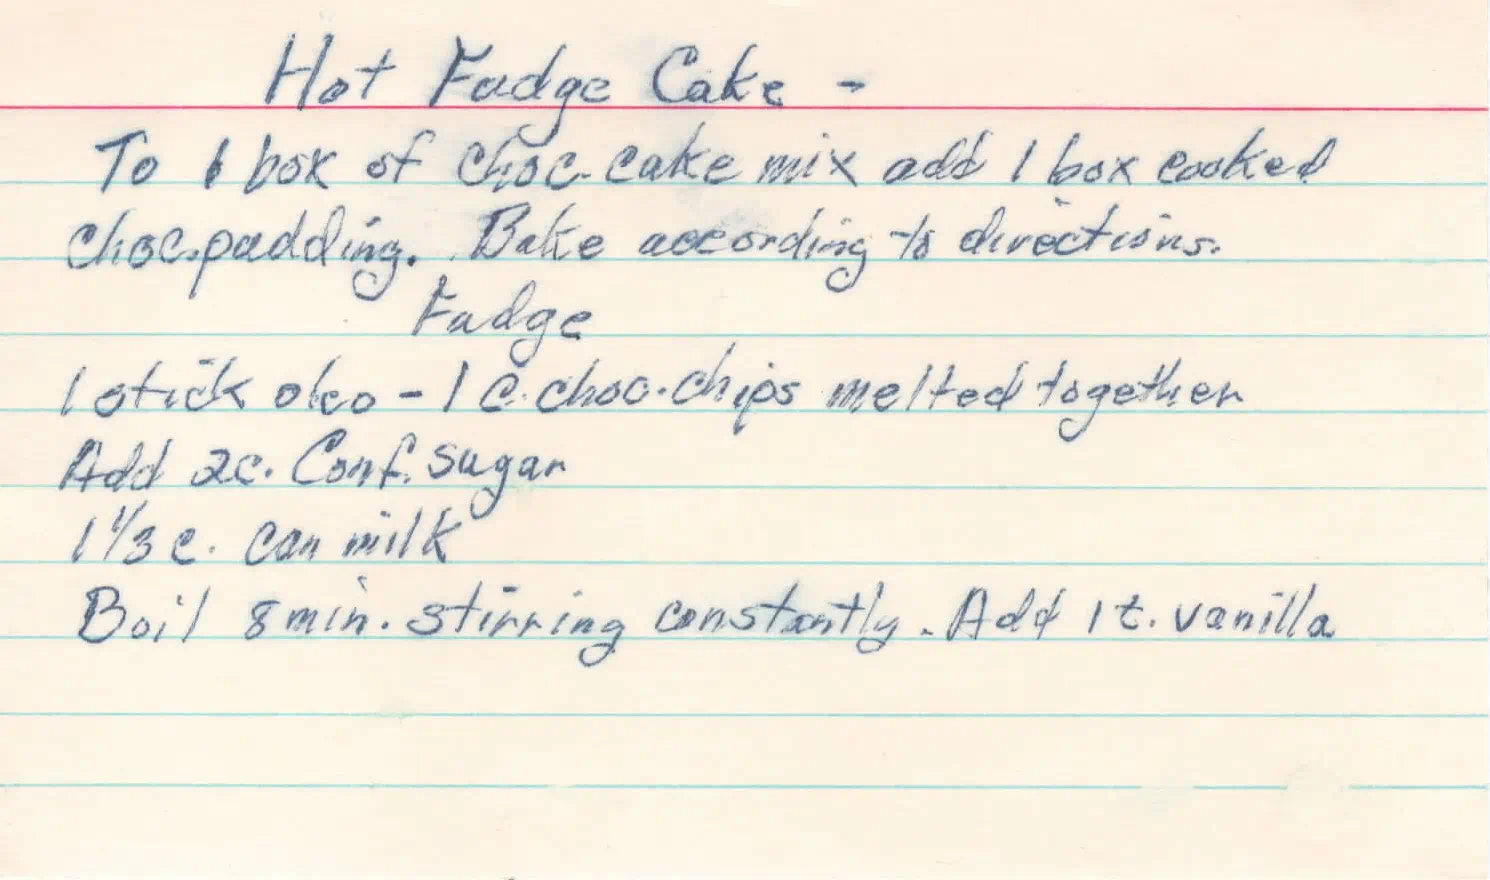 Hot Fudge Cake -
To 1 box of choc. cake mix add 1 box cooked
choc. pudding. Bake according to directions.
Fudge
1 stick oleo - 1 c. choc. chips melted together
Add 2c. Conf. sugar
1 1/3 c. can milk
Boil 8 min. stirring constantly. Add 1 t. vanilla